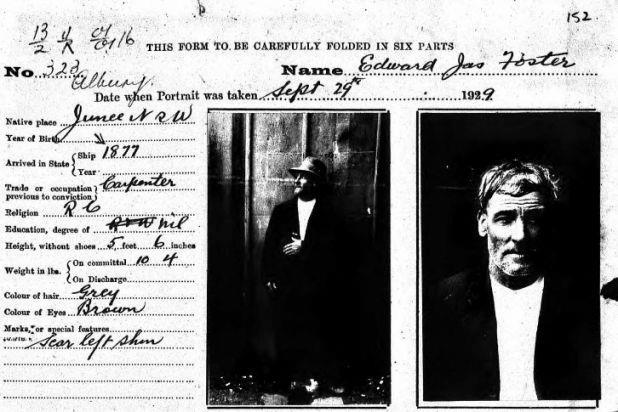 152.
13/2 4/R 04/09/16
THIS FORM TO BE CAREFULLY FOLDED IN SIX PARTS
No. 323 Name Edward Jas Foster
Albury.
Date when Portrait was taken Sept 29th 1929
Native place Junee N S W
Year of Birth
Arrived in State { Ship 1877
Year
Trade or occupation } Carpenter
previous to conviction }
Religion R C
Education, degree of R & W nil
Height, without shoes 5 feet 6 inches
Weight in lbs. { On committal 10 4
On Discharge
Colour of hair Grey
Colour of Eyes Brown
Marks, or special features
Scar left shin